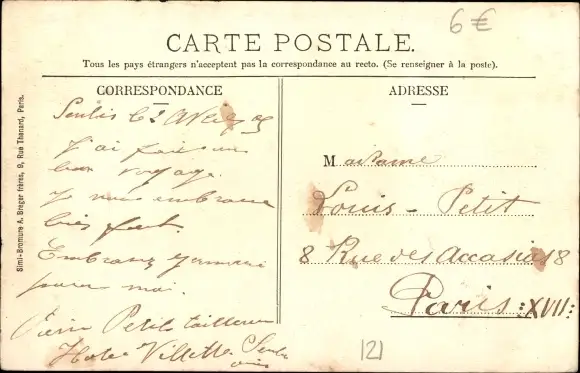 6€
CARTE POSTALE.
Tous les pays étrangers n'acceptent pas la correspondance au recto. (Se renseigner à la poste).
CORRESPONDANCE
ADRESSE
Simi-Bromure A. Breger frères, 9, Rue Thénard, Paris.
Senlis le 2 05
J'ai fait un
bon voyage.
Je vous embrasse
bien fort.
Embrasse
pour moi.
Petit tailleur
Hotel Villette Senlis
Oise
Madame
Louis Petit
8 Rue des Accasias 8
Paris XVII
121